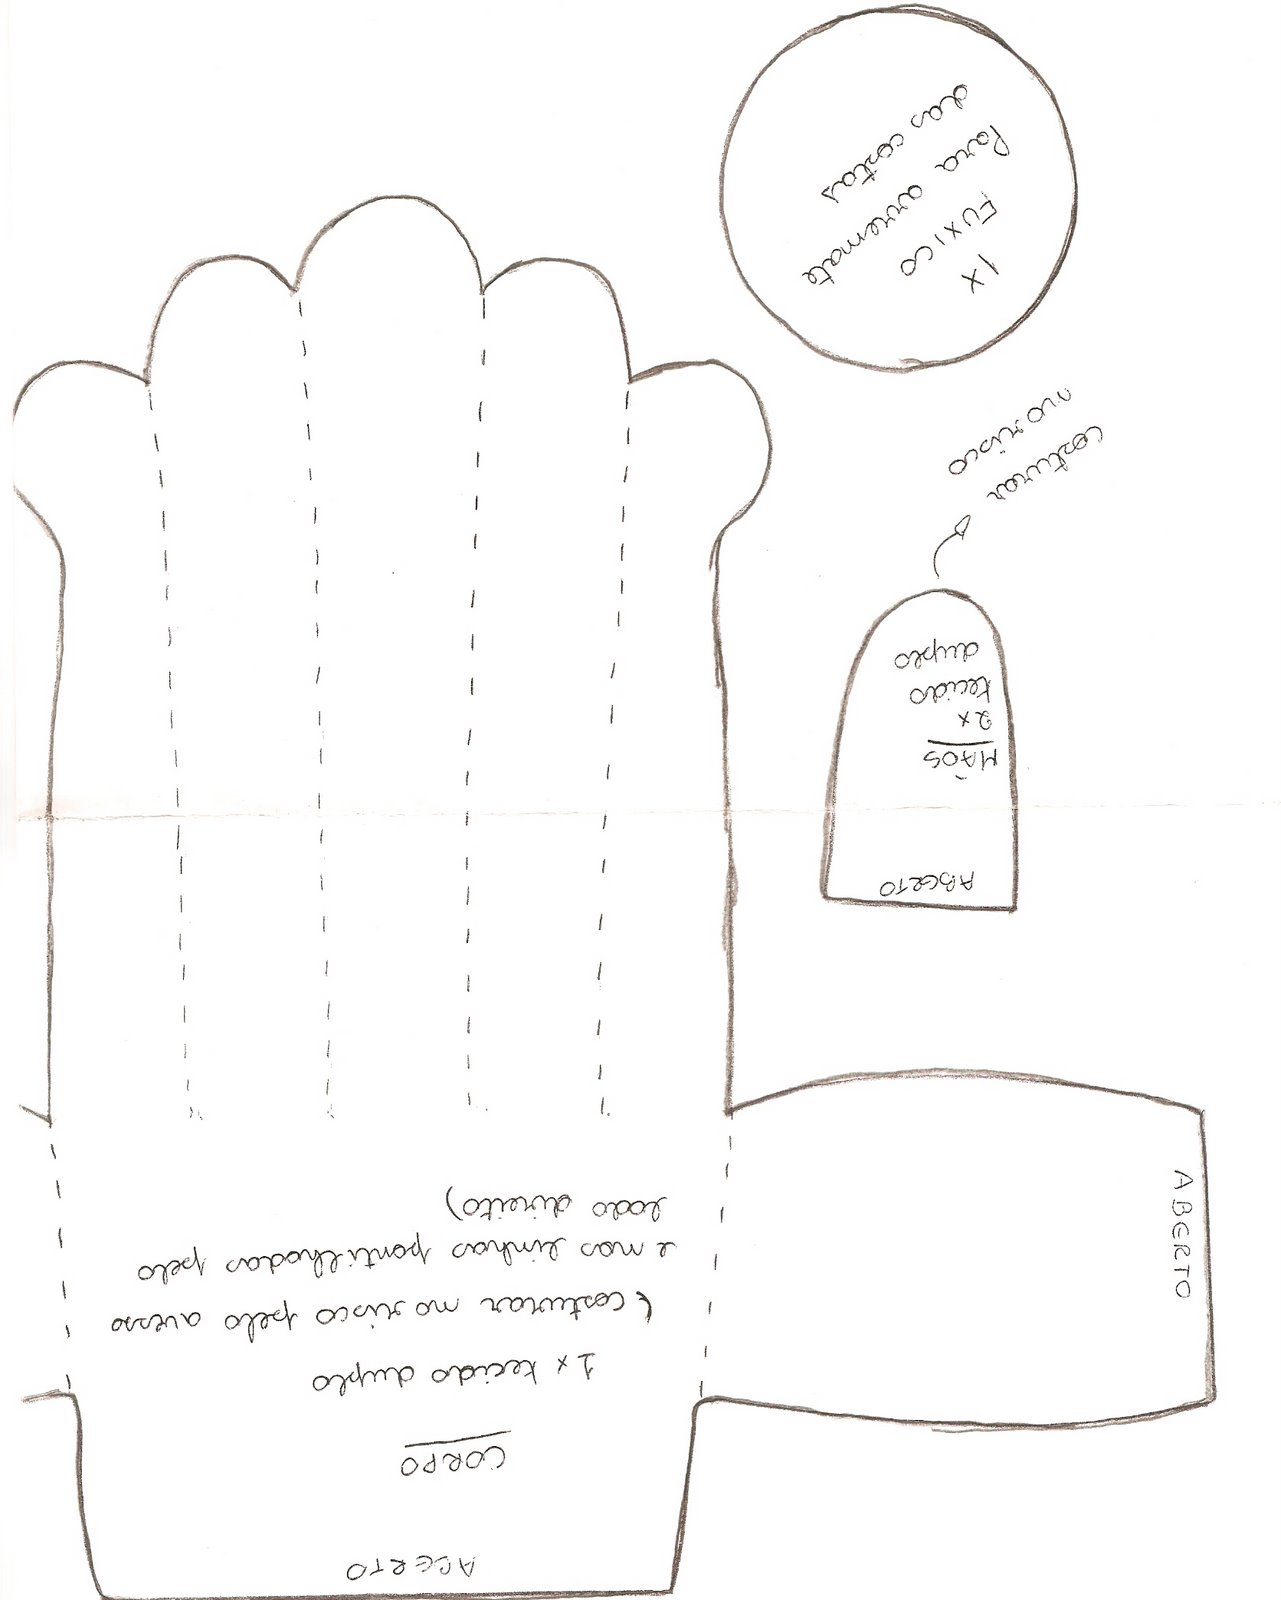 ABERTO
CORPO
1x tecido duplo
(costurar no risco pelo avesso
e nas linhas pontilhadas pelo
lado direito)
ABERTO
ABERTO
MÃOS
2x
tecido
duplo
costurar
no risco
1X
FUXICO
Para arremate
das costas